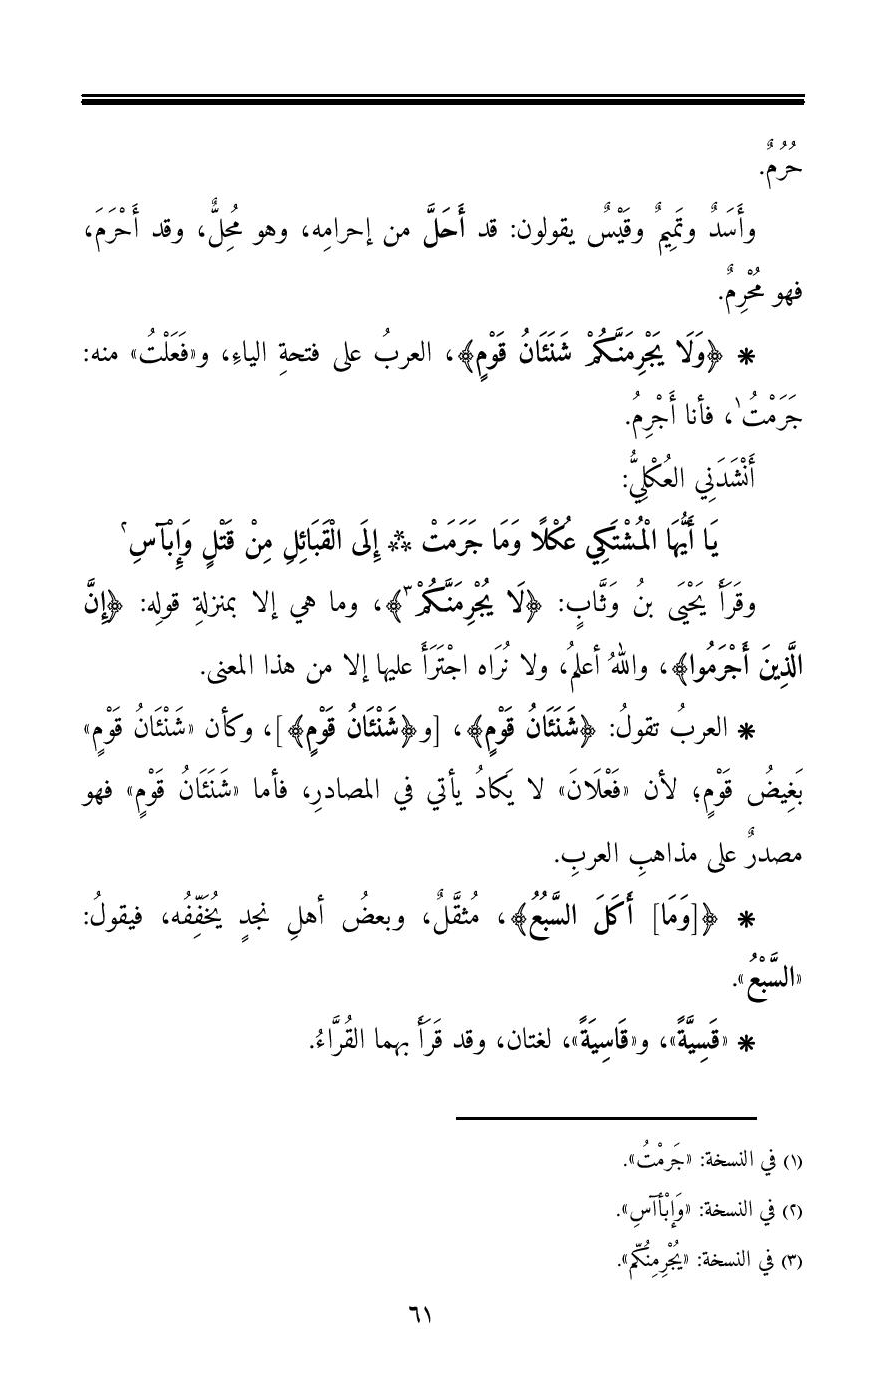 حُرُمٌ.
وأَسَدٌ وتَمِيمٌ وقَيْسٌ يقولون: قد أَحَلَّ من إحرامِه، وهو مُحِلٌّ، وقد أَحْرَمَ،
فهو مُحْرِمٌ.
* ﴿وَلَا يَجْرِمَنَّكُمْ شَنَـَٔانُ قَوْمٍ﴾، العربُ على فتحةِ الياءِ، و«فَعَلْتُ» منه:
جَرَمْتُ١، فأنا أَجْرِمُ.
أَنْشَدَنِي العُكْلِيُّ:
يَا أَيُّهَا الْمُشْتَكِي عُكْلًا وَمَا جَرَمَتْ ** إِلَى الْقَبَائِلِ مِنْ قَتْلٍ وَإِبْآسِ٢
وقَرَأَ يَحْيَى بنُ وَثَّابٍ: ﴿لَا يُجْرِمَنَّكُمْ٣﴾، وما هي إلا بمنزلةِ قولِه: ﴿إِنَّ
الَّذِينَ أَجْرَمُوا﴾، واللهُ أعلمُ، ولا نُرَاه اجْتَرَأَ عليها إلا من هذا المعنى.
* العربُ تقولُ: ﴿شَنَـَٔانُ قَوْمٍ﴾، [و﴿شَنْـَٔانُ قَوْمٍ﴾]، وكأن «شَنْـَٔانُ قَوْمٍ»
بَغِيضُ قَوْمٍ؛ لأن «فَعْلَانَ» لا يَكادُ يأتي في المصادرِ، فأما «شَنَـَٔانُ قَوْمٍ» فهو
مصدرٌ على مذاهبِ العربِ.
* ﴿[وَمَا] أَكَلَ السَّبُعُ﴾، مُثقَّلٌ، وبعضُ أهلِ نجدٍ يُخَفِّفُه، فيقولُ:
«السَّبْعُ».
* «قَسِيَّةً»، و«قَاسِيَةً»، لغتان، وقد قَرَأَ بهما القُرَّاءُ.
(١) في النسخة: «جَرمْتُ».
(٢) في النسخة: «وَإبْأآسِ».
(٣) في النسخة: «يُجْرِمِنُكّم».
٦١